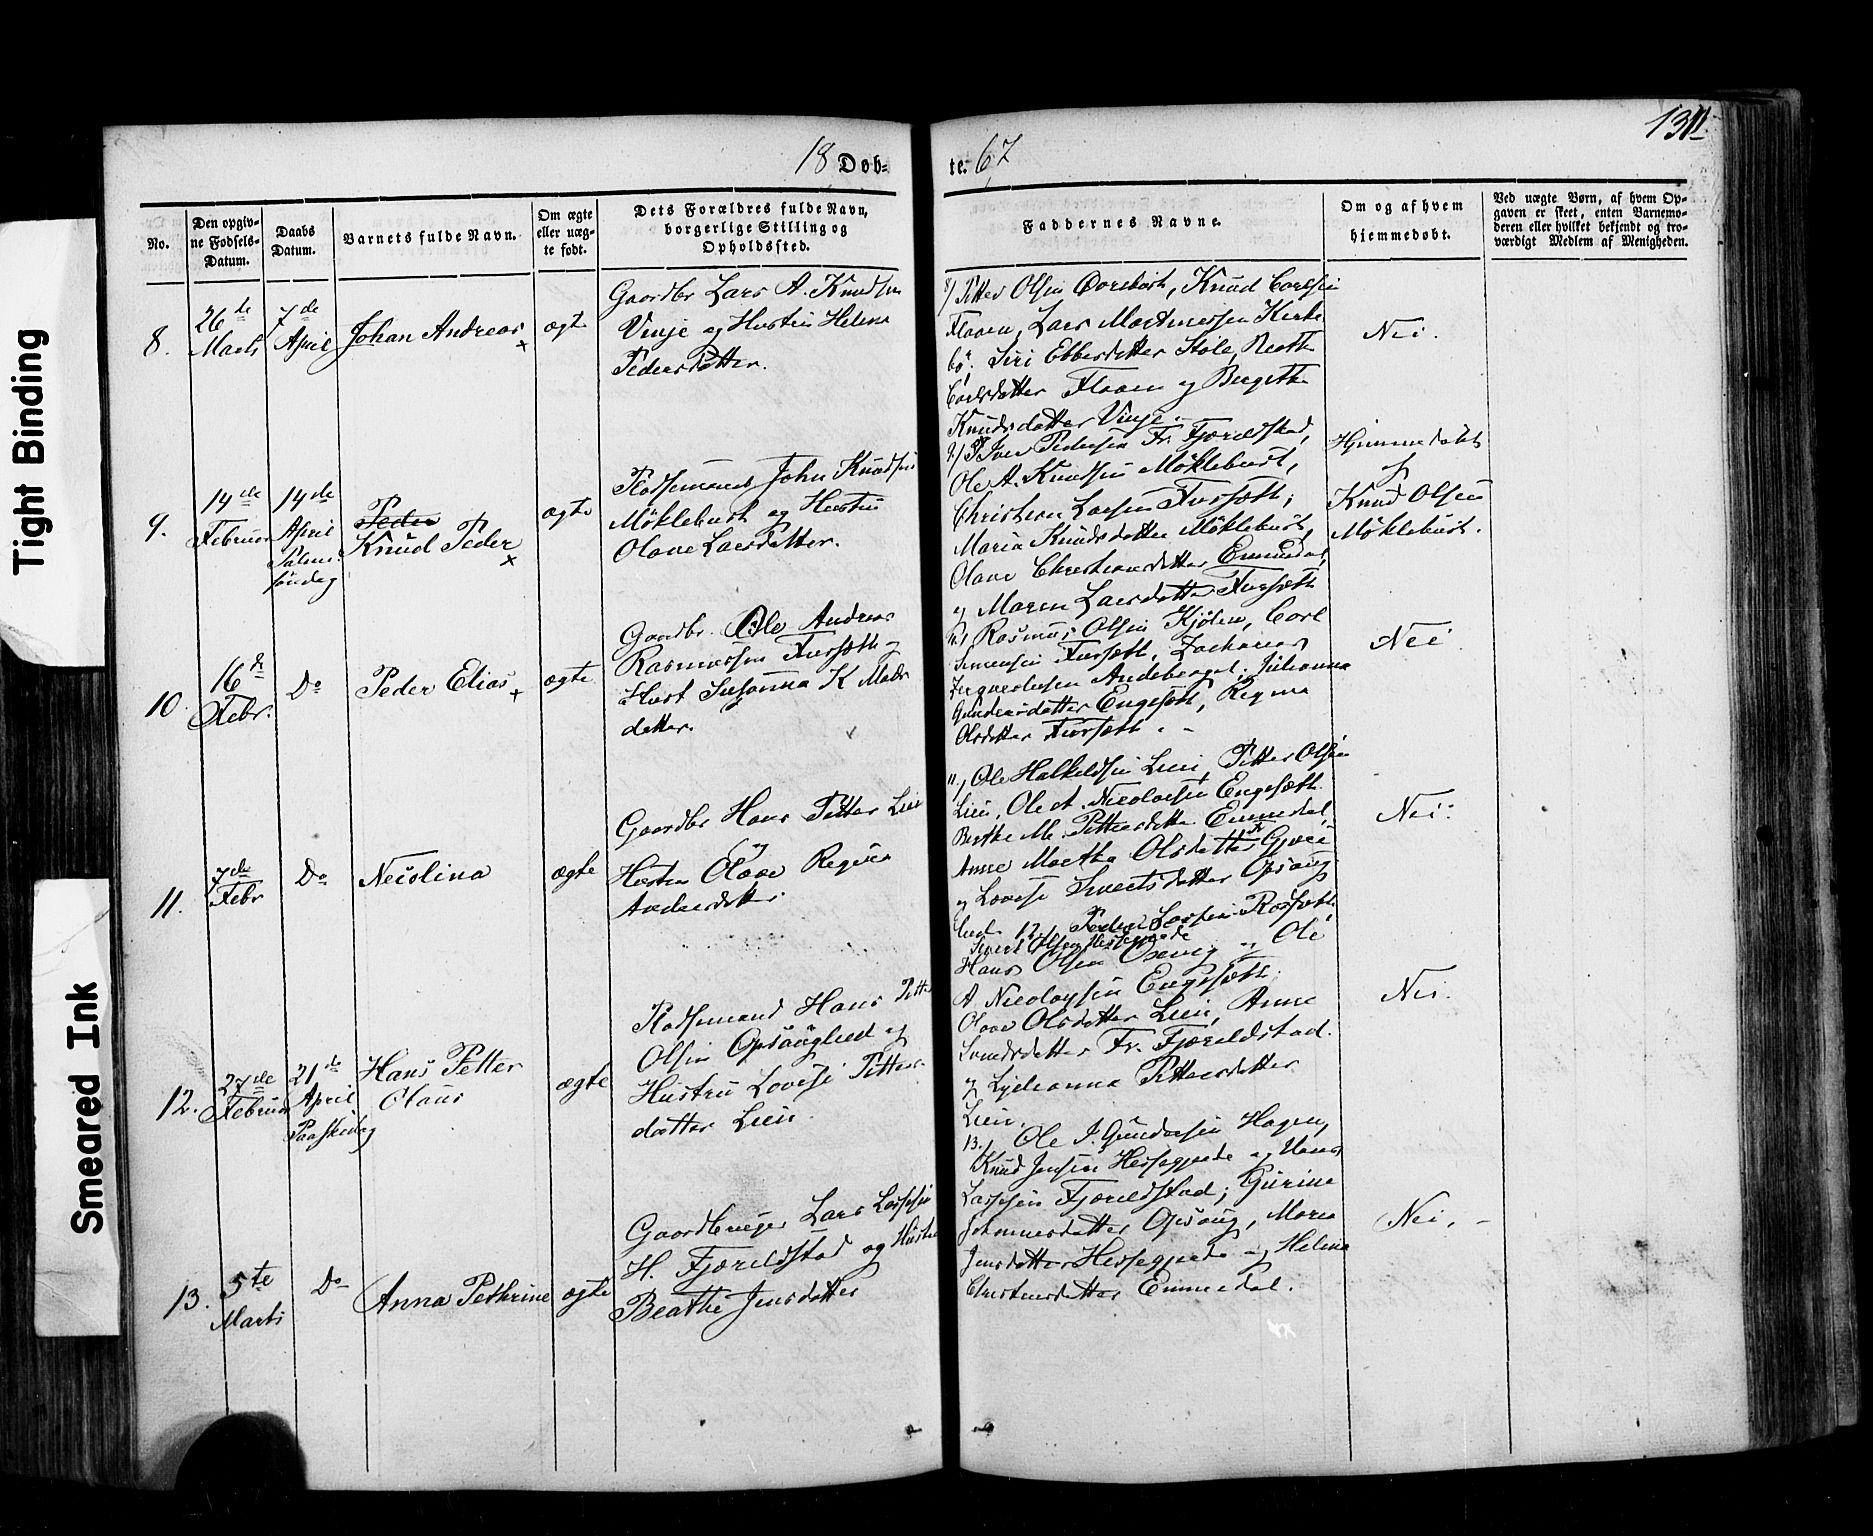 Tight Binding
Smeared Ink
18 Døb-
te. 67
131
No.
Den opgiv-
ne Fødsels-
Datum.
Daabs
Datum.
Barnets fulde Navn.
Om ægte
eller uæg-
te født.
Dets Forældres fulde Navn,
borgerlige Stilling og
Opholdssted.
Faddernes Navne.
Om og af hvem
hjemmedøbt.
Ved uægte Børn, af hvem Op-
gaven er skeet, enten Barnemo-
deren eller hvilket bekjendt og tro-
værdigt Medlem af Menigheden.
8.
26de
Marts
7de
April
Johan Andreas
ægte
Gaardbr Lars A. Knudsen
Vinje og Hustru Helena
Pedersdatter.
8/ Petter Olsen Carlsen
Flaaen, Lars Martinussen Kirke
bø; Siri Ebbesdatter Støle, Beathe
Carlsdatter Flaaen og Bergithe
Knudsdatter Vinje.
Nei.
9.
14de
Februar
14de
April
Palme
søndag
Peder
Knud Peder
ægte
Pladsemand John Knudsen
Møklebust og Hustru
Olave Larsdatter.
9/ Iver Pedersen Fr. Fjøreldstad,
Ole A. Knudsen Møklebust,
Christian Larsen Fursæth;
Maria Knudsdatter Møklebust,
Olave Christiansdatter Emmedal,
og Maren Larsdatter Fursæth
Hjemmedøbt
af
Knud Olsen
Møklebust.
10.
16de
Febr.
Do
Peder Elias
ægte
Gaardbr. Ole Andreas
Rasmussen Fursæth og
Hust Susanna K Mads
datter.
10/ Rasmus Olsen Kjølen, Carl
Simensen Fursæth, Zacharias
Andeberget; Julianna
Gundersdatter Engesæth, Regina
Olsdatter Fursæth.
Nei
11.
7de
Febr
Do
Nicolina
ægte
Gaardbr Hans Petter Lien
og
Hustru Olave Regina
Andersdatter
11/ Ole Halkeldsen Lien, Petter Olsen
Lien, Ole A. Nicolaisen Engesæth
Berthe M. Pettersdatter Emmedal,
Anne Martha Olsdatter
og Lovise Sivertsdatter Opsaug
lied.
Nei.
12.
27de
Februar
21de
April
Paaskedag
Hans Petter
Olaus
ægte
Pladsemand Hans Petter
Olsen Opsauglied og
Hustru Lovise Petters-
datter Lien.
12/ Peder Larsen
Sivert Olsen Hessegjerde
Hans Olsen og Ole
A. Nicolaysen Engesæth;
Olave Olsdatter Lien, Anne
Fr. Fjøreldstad.
og Lydianna Pettersdatter
Lien.
Nei.
13.
5te
Marts
Do
Anna Pethrine
ægte
Gaardbruger Lars Larssen
H. Fjøreldstad og Hustru
Beathe Jensdatter
13/ Ole J. Gundersen Hagen,
Knud Jensen Hessegjerde og Hans
Larssen Fjøreldstad; Gurine
Johannesdatter Opsaug, Maria
Jensdatter Hessegjerde og Helena
Christensdatter Emmedal.
Nei.